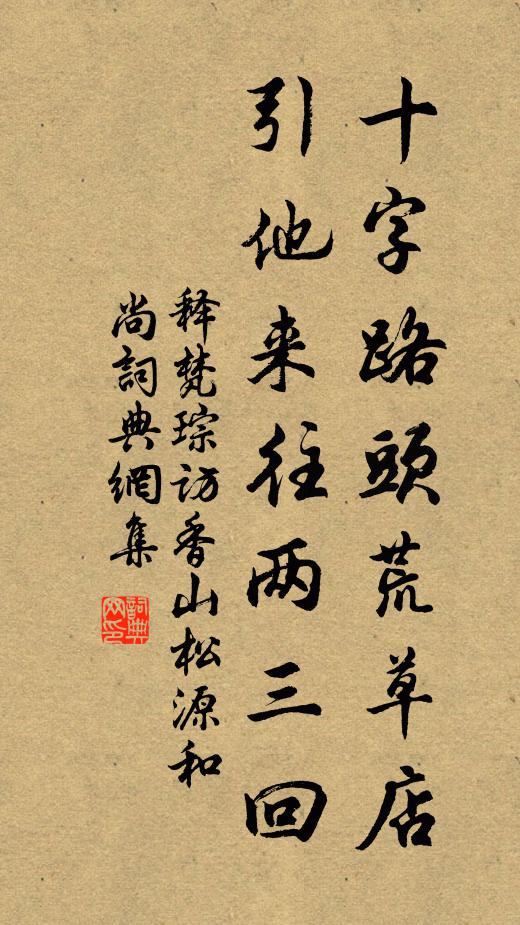 十字路頭荒草店
引他来往两三回
释梵琮访香山松源和
尚詞典網集
詞典网印